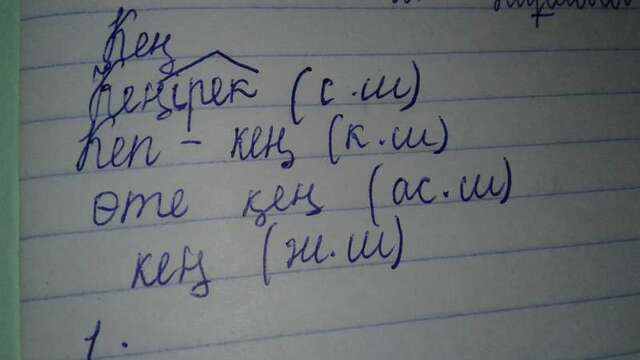 Кең
Кеңірек (с.ш)
Кеп - кең (к.ш)
өте кең (ас.ш)
кең (ж.ш)
1.